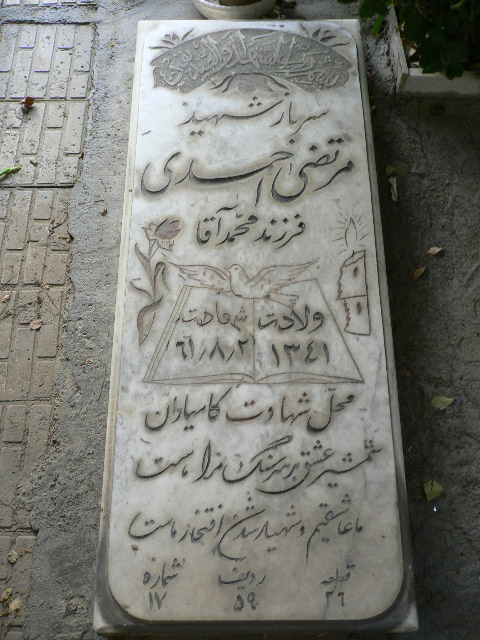 سرباز شهید
مرتضی احمدی
فرزند محمد آقا
ولادت شهادت
۱۳۴۱ ۶۱/۸/۲
محل شهادت کاسیاران
شمشیر عشق بر سر سنگ مزار ماست
ما عاشقیم و شهید شدن افتخار ماست
قطعه ردیف شماره
۲۶ ۵۹ ۱۷